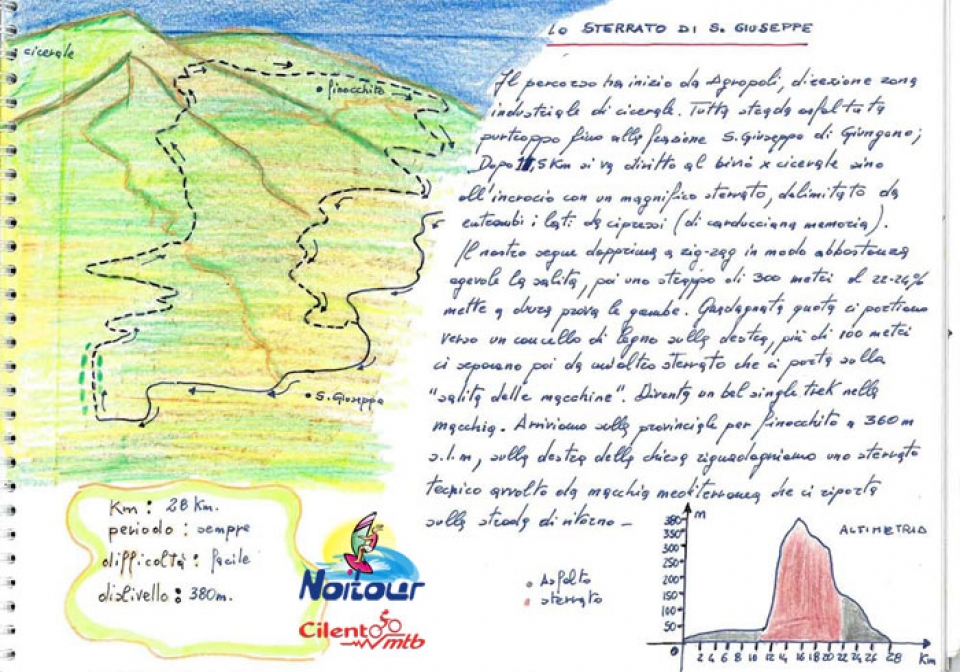 LO STERRATO DI S. GIUSEPPE
cicerale
finocchito
S. Giuseppe
Il percorso ha inizio da Agropoli, direzione zona
industriale di cicerale. Tutta strada asfaltata
purtroppo fino alla frazione S. Giuseppe di Giungano;
Dopo 11,5 Km si va diritto al bivio x cicerale sino
all'incrocio con un magnifico sterrato, delimitato da
entrambi i lati da cipressi (di carducciana memoria).
Il nostro segue dapprima a zig-zag in modo abbastanza
agevole la salita, poi uno strappo di 300 metri al 22-24%
mette a dura prova le gambe. Guadagnata quota ci portiamo
verso un cancello di legno sulla destra, più di 100 metri
ci separano poi da un'altro sterrato che ci porta sulla
"salita delle macchine". Diventa un bel single trek nella
macchia. Arriviamo sulla provinciale per finocchito a 360m
s.l.m, sulla destra della chiesa riguadagniamo uno sterrato
tecnico avvolto da macchia mediterranea che ci riporta
sulla strada di ritorno _
Km : 28 Km.
periodo : sempre
difficoltà : facile
dislivello : 380m.
Noitour
Cilento mtb
Asfalto
sterrato
ALTIMETRIA
m
380
350
300
250
200
150
100
50
0
2 4 6 8 10 12 14 16 18 20 22 24 26 28 Km